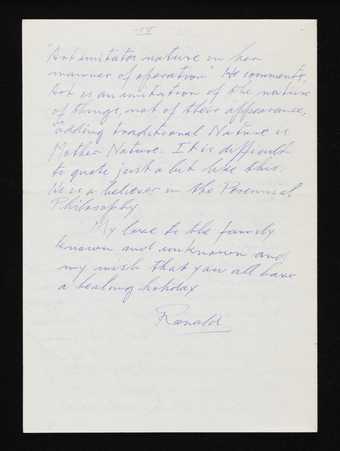 IV
"Art imitates nature in her
manner of operation" He comments,
Art is an imitation of the nature
of things, not of their appearance,
adding traditional Nature is
Mother Nature. It is difficult
to quote just a bit like this.
He is a believer in the Perennial
Philosophy
My love to the family
known and unknown and
my wish that you all have
a healing holiday
Ronald